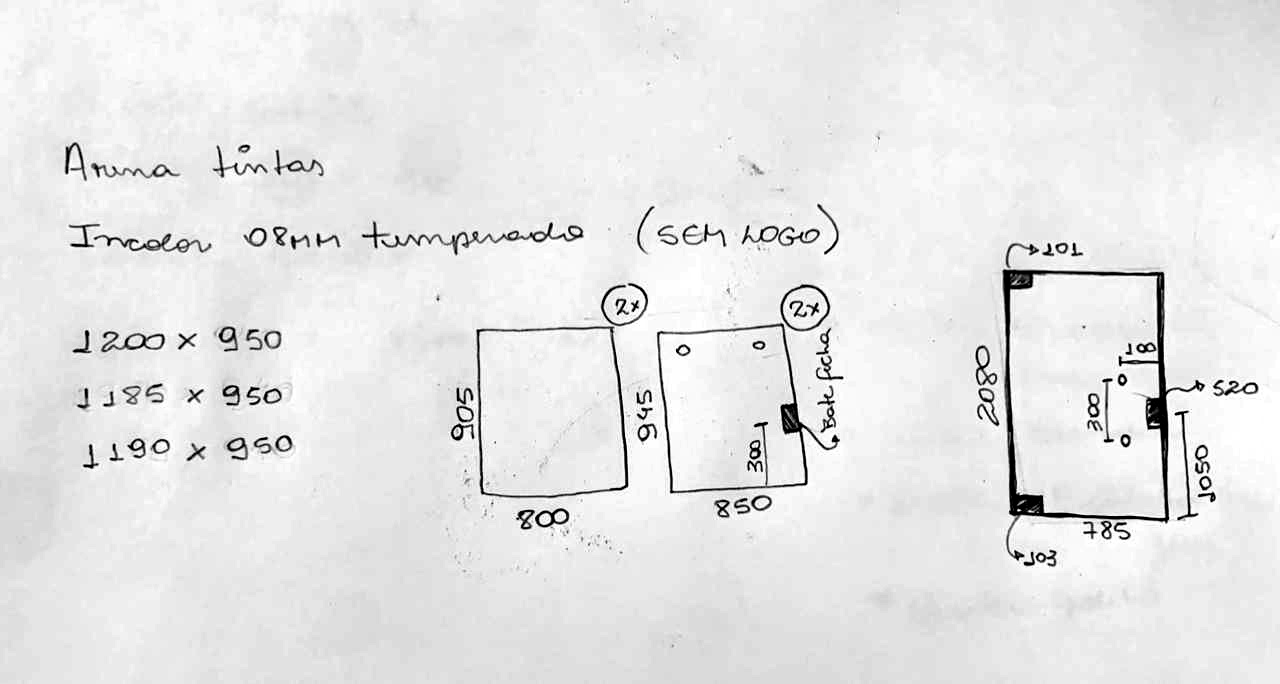 Aruna tintas
Incolor 08MM temperado (SEM LOGO)
1200 x 950
1185 x 950
1190 x 950
2x
905
800
2x
945
Bate ficha
300
850
101
2080
18
300
520
1050
785
103